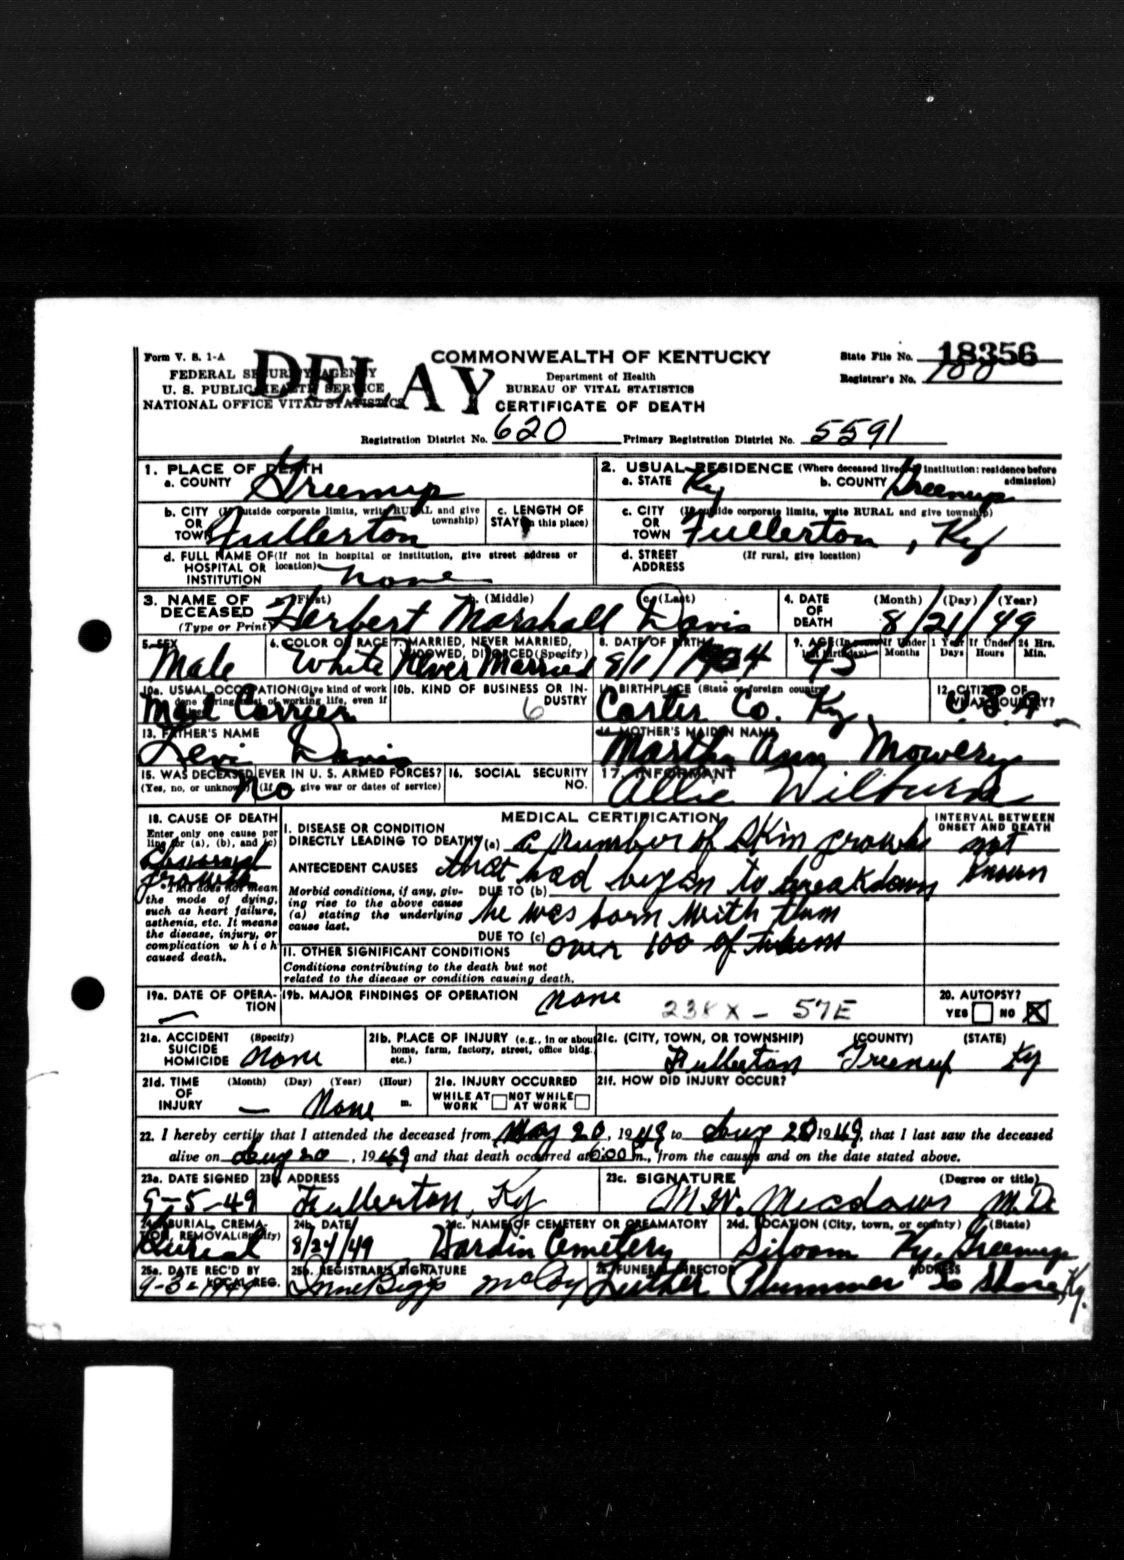 Form V. S. 1-A
DELAY
COMMONWEALTH OF KENTUCKY
State File No. 18356
FEDERAL SECURITY AGENCY
Department of Health
Registrar's No. 100
U. S. PUBLIC HEALTH SERVICE
BUREAU OF VITAL STATISTICS
NATIONAL OFFICE VITAL STATISTICS
CERTIFICATE OF DEATH
Registration District No. 620 Primary Registration District No. 5591
1. PLACE OF DEATH
a. COUNTY Greenup
2. USUAL RESIDENCE (Where deceased lived. If institution: residence before admission)
a. STATE Ky b. COUNTY Greenup
b. CITY (If outside corporate limits, write RURAL and give township)
OR TOWN Fullerton
c. LENGTH OF STAY (in this place)
c. CITY (If outside corporate limits, write RURAL and give township)
OR TOWN Fullerton, Ky
d. FULL NAME OF (If not in hospital or institution, give street address or location)
HOSPITAL OR INSTITUTION none
d. STREET ADDRESS (If rural, give location)
3. NAME OF DECEASED (Type or Print)
(First) (Middle) (Last)
Herbert Marshall Davis
4. DATE OF DEATH (Month) (Day) (Year)
8/21/49
5. SEX Male
6. COLOR OR RACE White
7. MARRIED, NEVER MARRIED, WIDOWED, DIVORCED (Specify) Never Married
8. DATE OF BIRTH 9/1/1904
9. AGE (In years last birthday) 45
If Under 1 Year Months Days
If Under 24 Hrs. Hours Min.
10a. USUAL OCCUPATION (Give kind of work done during most of working life, even if retired)
Mail Carrier
10b. KIND OF BUSINESS OR INDUSTRY
6
11. BIRTHPLACE (State or foreign country)
Carter Co. Ky.
12. CITIZEN OF WHAT COUNTRY?
U.S.A.
13. FATHER'S NAME
Levi Davis
14. MOTHER'S MAIDEN NAME
Martha Ann Mowery
15. WAS DECEASED EVER IN U. S. ARMED FORCES?
(Yes, no, or unknown) (If yes, give war or dates of service)
No
16. SOCIAL SECURITY NO.
17. INFORMANT
Allie Wilburn
18. CAUSE OF DEATH
Enter only one cause per line for (a), (b), and (c)
growth
*This does not mean the mode of dying, such as heart failure, asthenia, etc. It means the disease, injury, or complication which caused death.
MEDICAL CERTIFICATION
INTERVAL BETWEEN ONSET AND DEATH
I. DISEASE OR CONDITION DIRECTLY LEADING TO DEATH* (a) a number of skin growths
not known
ANTECEDENT CAUSES that had began to breakdown
Morbid conditions, if any, giving rise to the above cause (a) stating the underlying cause last.
DUE TO (b) he was born with them
DUE TO (c) over 100 of them
II. OTHER SIGNIFICANT CONDITIONS
Conditions contributing to the death but not related to the disease or condition causing death.
19a. DATE OF OPERATION —
19b. MAJOR FINDINGS OF OPERATION none
238X – 57E
20. AUTOPSY?
YES NO X
21a. ACCIDENT SUICIDE HOMICIDE (Specify) none
21b. PLACE OF INJURY (e.g., in or about home, farm, factory, street, office bldg. etc.)
21c. (CITY, TOWN, OR TOWNSHIP) (COUNTY) (STATE)
Fullerton Greenup Ky
21d. TIME OF INJURY (Month) (Day) (Year) (Hour) m.
— None
21e. INJURY OCCURRED
WHILE AT WORK NOT WHILE AT WORK
21f. HOW DID INJURY OCCUR?
22. I hereby certify that I attended the deceased from May 20, 1949 to Aug 20 1949, that I last saw the deceased
alive on Aug 20, 1949 and that death occurred at 6:00 m., from the causes and on the date stated above.
23a. DATE SIGNED 9-5-49
23b. ADDRESS Fullerton, Ky
23c. SIGNATURE (Degree or title)
M. W. Meadows M.D.
24a. BURIAL, CREMATION, REMOVAL (Specify) Burial
24b. DATE 8/24/49
24c. NAME OF CEMETERY OR CREAMATORY Hardin Cemetery
24d. LOCATION (City, town, or county) (State)
Siloam Ky. Greenup
25a. DATE REC'D BY LOCAL REG. 9-3-1949
25b. REGISTRAR'S SIGNATURE
McCoy
26. FUNERAL DIRECTOR ADDRESS
Luther Plummer So Shore, Ky.